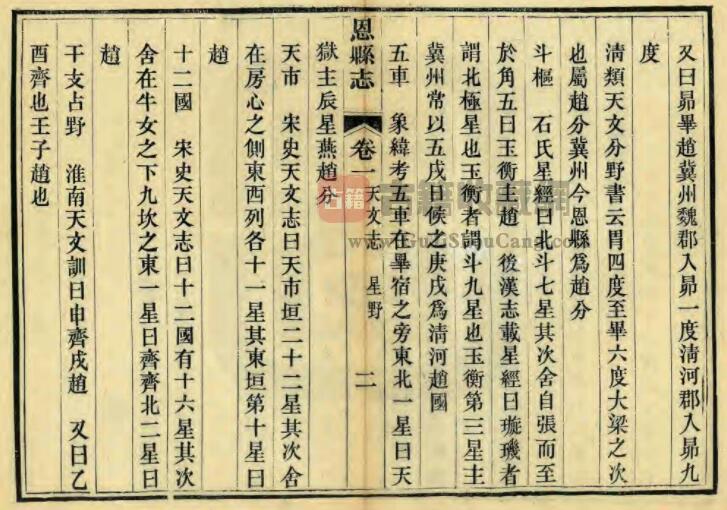 又曰昴畢趙冀州魏郡入昴一度淸河郡入昴九
度
淸類天文分野書云胃四度至畢六度大梁之次
也屬趙分冀州今恩縣爲趙分
斗樞 石氏星經曰北斗七星其次舍自張而至
於角五曰玉衡主趙 後漢志載星經曰璇璣者
謂北極星也玉衡者謂斗九星也玉衡第三星主
冀州常以五戌日候之庚戌爲淸河趙國
五車 象緯考五車在畢宿之旁東北一星曰天
恩縣志 卷一 天文志 星野 二
獄主辰星燕趙分
天市 宋史天文志曰天市垣二十二星其次舍
在房心之側東西列各十一星其東垣第十星曰
趙
十二國 宋史天文志曰十二國有十六星其次
舍在牛女之下九坎之東一星曰齊齊北二星曰
趙
干支占野 淮南天文訓曰申齊戌趙 又曰乙
酉齊也壬子趙也
古籍
古籍收藏網
www.GuJiShouCang.com